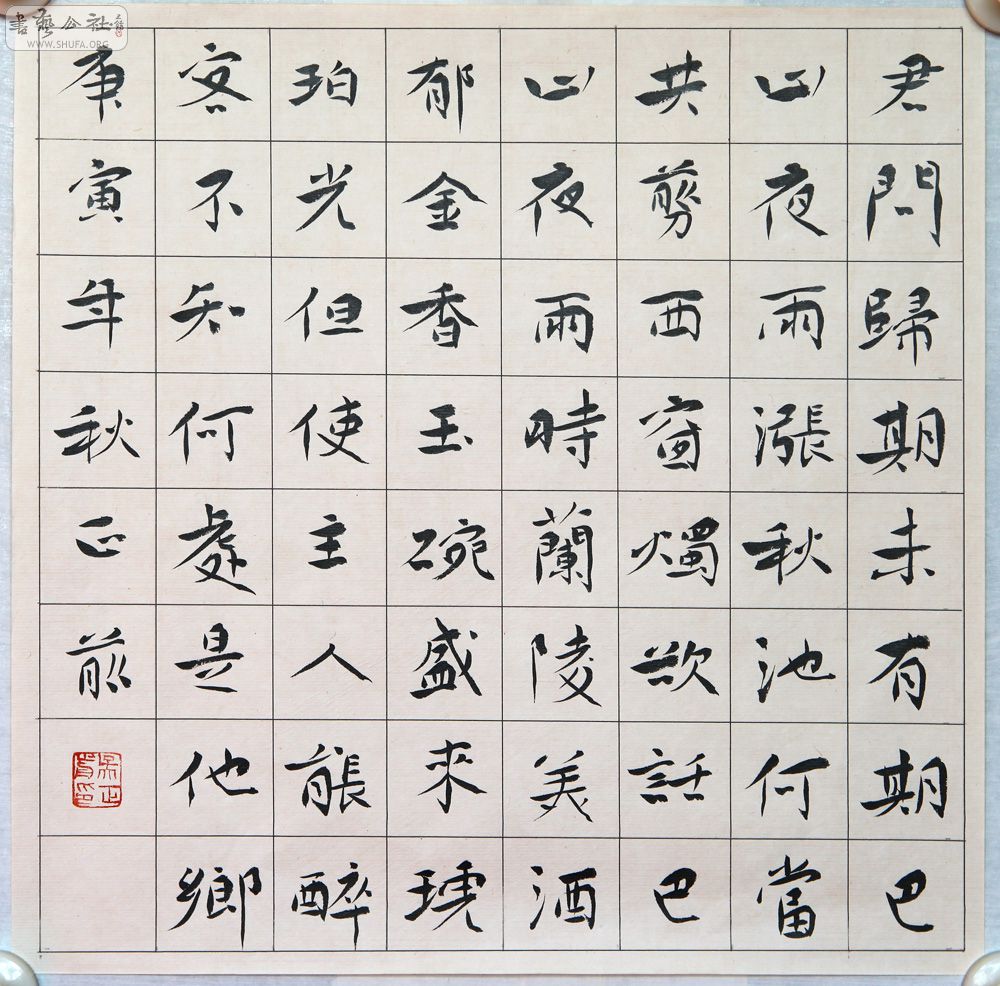 書藝公社
WWW.SHUFA.ORG
君問歸期未有期巴
山夜雨漲秋池何當
共剪西窗燭欲話巴
山夜雨時蘭陵美酒
郁金香玉碗盛來琥
珀光但使主人能醉
客不知何處是他鄉
庚寅年秋正前